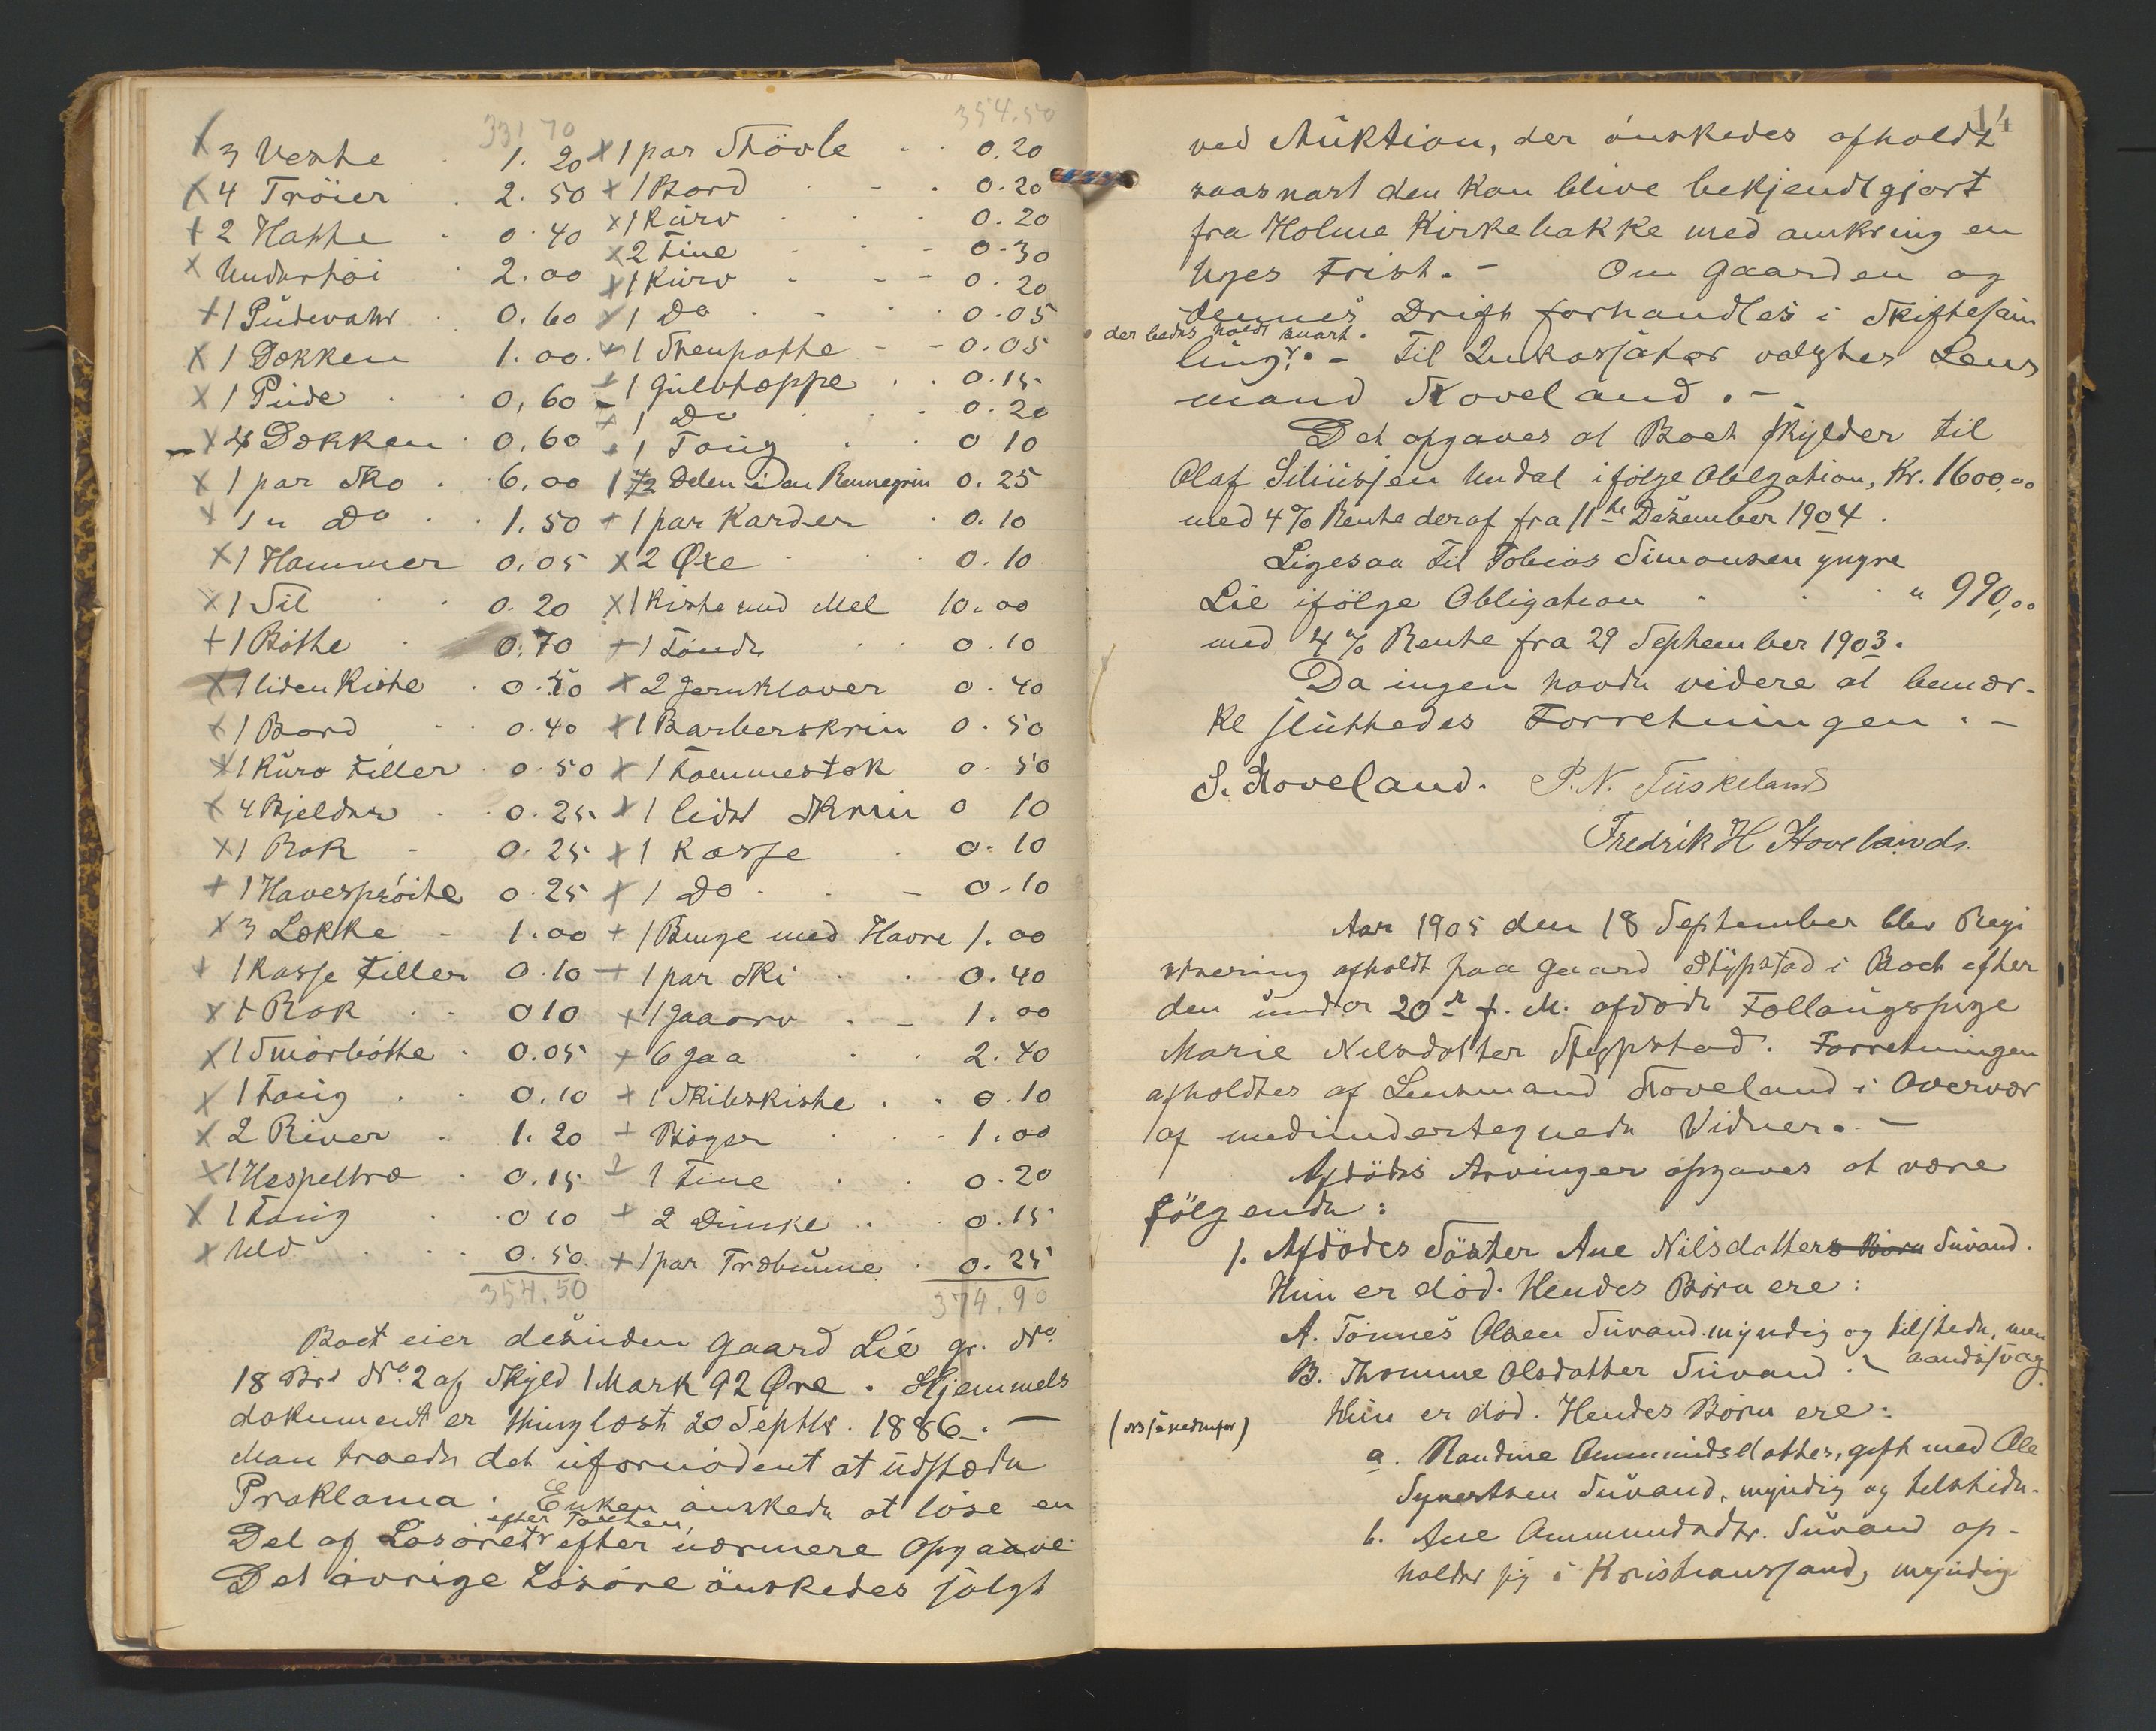 331 70
x 3 Veste . 1. 20
x 4 Tröier . 2. 50
+ 2 Hatte . 0. 40
x Undertöi . 2. 00
+ 1 Pudevahr . 0. 60
x 1 Dækken 1. 00.
x 1 Pude . . 0, 60
x 4 Dækken . 0. 60
x 1 par Sko . 6, 00
x 1 " Do . . 1. 50
x 1 Hammer 0. 05
x 1 Sil . . 0. 20
+ 1 Bötte . . 0. 70
x 1 liden Kiste . 0. 50
x 1 Bord . . 0. 40
x 1 Kurv Filler . 0. 50
x 4 Bjelder . . 0. 25
x 1 Rok - 0. 25
+ 1 Havespröite 0. 25
x 3 Lække - 1. 00
+ 1 Kasse Filler 0. 10
x 1 Rok . . 0 10
x 1 Smörbötte . 0. 05
x 1 Toug . . 0. 10
x 2 River . 1. 20
x 1 Hespeltræ . 0. 15
x 1 Toug . 0 10
x Uld . . . 0. 50.
354. 50
354. 50
x 1 par Stövle . . 0. 20
+ 1 Bord . - . 0. 20
x 1 Kurv . . . 0. 20
x 2 Tine - - 0. 30
x 1 Kurv . - - 0. 20
x 1 Do . - . 0. 05
+ 1 Stenpotte - - 0. 05
+ 1 Gulvteppe . . 0. 15
+ 1 Do . . . 0. 20
+ 1 Toug . . 0 10
1/2 Delen i en Rennegrin 0. 25
+ 1 par Karder . 0. 10
x 2 Øxe . . 0. 10
x 1 Kiste med Mel 10. 00
+ 1 Tönde . . 0. 10
x 2 Jernklaver 0. 40
x 1 Barberskrin 0. 50
x 1 Tommestok 0. 50
x 1 lidet Skrin 0 10
+ 1 Kasse . 0. 10
x 1 Do . . - 0. 10
+ 1 Binge med Havre 1. 00
+ 1 par Ski . . 0. 40
+ 1 Jaaorv . - 1. 00
+ 6 Jaa . . 2. 40
+ 1 Skibskiste . . 0. 10
+ Böger . . . 1. 00
+ 1 Tine . . 0. 20
+ 2 Dunke . . 0. 15
+ 1 par Træbumme . 0. 25
374. 90
Boet eier desuden Gaard Lie gr. No.
18 Brs No. 2 af Skyld 1 Mark 92 Øre. Hjemmels
dokument er thinglæst 20 Septbr. 1886. -
Man troede det ufornödent at udstede
Proklama. Enken önskede at löse en
Del af Lösöret efter Taxten, efter nærmere Opgave.
Det övrige Lösöre önskedes solgt
14
ved Auktion, der önskedes afholdt
saasnart den kan blive bekjendtgjort
fra Holme Kirkebakke med omkring en
Uges Frist. - Om Gaarden og
dennes Drift forhandles i Skiftesam
der bedes holdt snart.
ling. - Til Inkassatör valgtes Lens
mand Stoveland. -
Det opgaves at Boet skylder til
Olaf Siliussen Undal ifölge Obligation, Kr. 1600,00
med 4% Rente deraf fra 11te Desember 1904.
Ligesaa til Tobias Simonsen yngre
Lie ifölge Obligation . . . " 990,00
med 4% Rente fra 29 September 1903.
Da ingen havde videre at bemær-
ke sluttedes Forretningen. -
S. Stoveland. P. N. Tuskeland
Fredrik H Stoveland.
Aar 1905 den 18 September blev Regi
strering afholdt paa Gaard Stypstad i Boet efter
den under 20de f. M. afdöde Follaugspige
Marie Nilsdatter Stypstad. Forretningen
afholdtes af Lensmand Stoveland i Overvær
af medundertegnede Vidner. -
Afdödes Arvinger opgaves at være
fölgende:
1. Afdödes Söster Ane Nilsdatters Börn Suvand.
Hun er död. Hendes Börn ere:
A. Tönnes Olsen Suvand. myndig og tilstede, men
aandssvag.
B. Thomine Olsdatter Suvand.
Hun er död. Hendes Börn ere:
a. Randine Ammundsdatter, gift med Ole
Syvertsen Suvand, myndig og tilstede.
b. Ane Ammundsdtr. Suvand op-
holder sig i Kristianssand, myndig